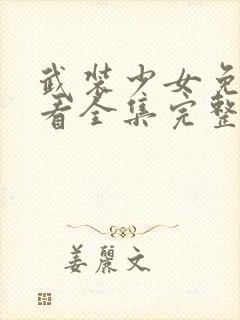 武装少女免
看全集完整
姜丽文